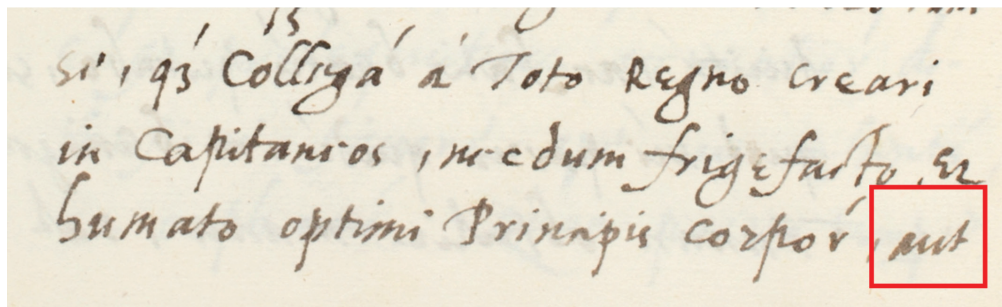 si, qź Collega á Toto Regno creari
in Capitaneos, necdum frigefacto, Et
humato optimi Principis corpoŕ, aut